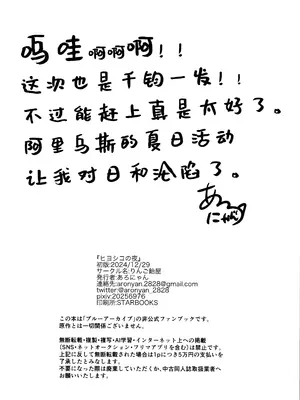 呜哇啊啊啊！！
这次也是千钧一发！！
不过能赶上真是太好了。
阿里乌斯的夏日活动
让我对日和沦陷了。
あろにゃん
『ヒヨシコの夜』
初版:2024/12/29
サークル名:りんご飴屋
発行者:あろにゃん
連絡先:aronyan.2828@gmail.com
twitter:@aronyan_2828
pixiv:20256976
印刷所:STARBOOKS
この本は「ブルーアーカイブ」の非公式ファンブックです。
原作とは一切関係ございません。
無断転載・複製・複写・AI学習・インターネット上への掲載
(SNS・ネットオークション・フリマアプリを含む)は禁止です。
上記に反して無断転載された場合は1pにつき5万円の支払いを
了承したとみなします。
不要になった際は廃棄していただくか、中古同人誌取扱業者へ
お願いいたします。